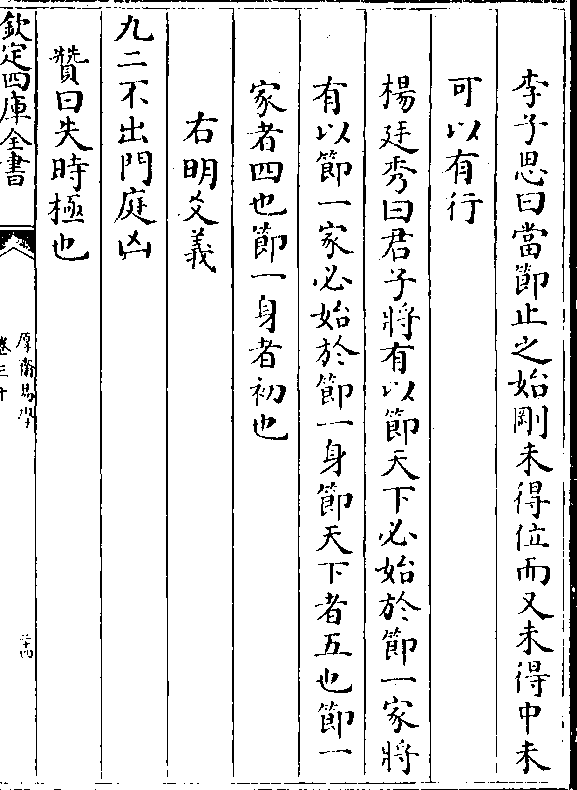 李子思曰當節止之始剛未得位而又未得中未
可以有行
楊廷秀曰君子將有以節天下必始於節一家將
有以節一家必始於節一身節天下者五也節一
家者四也節一身者初也
右明爻義
九二不出門庭凶
贊曰失時極也
欽定四庫全書
厚齋易學
卷三十
二十四